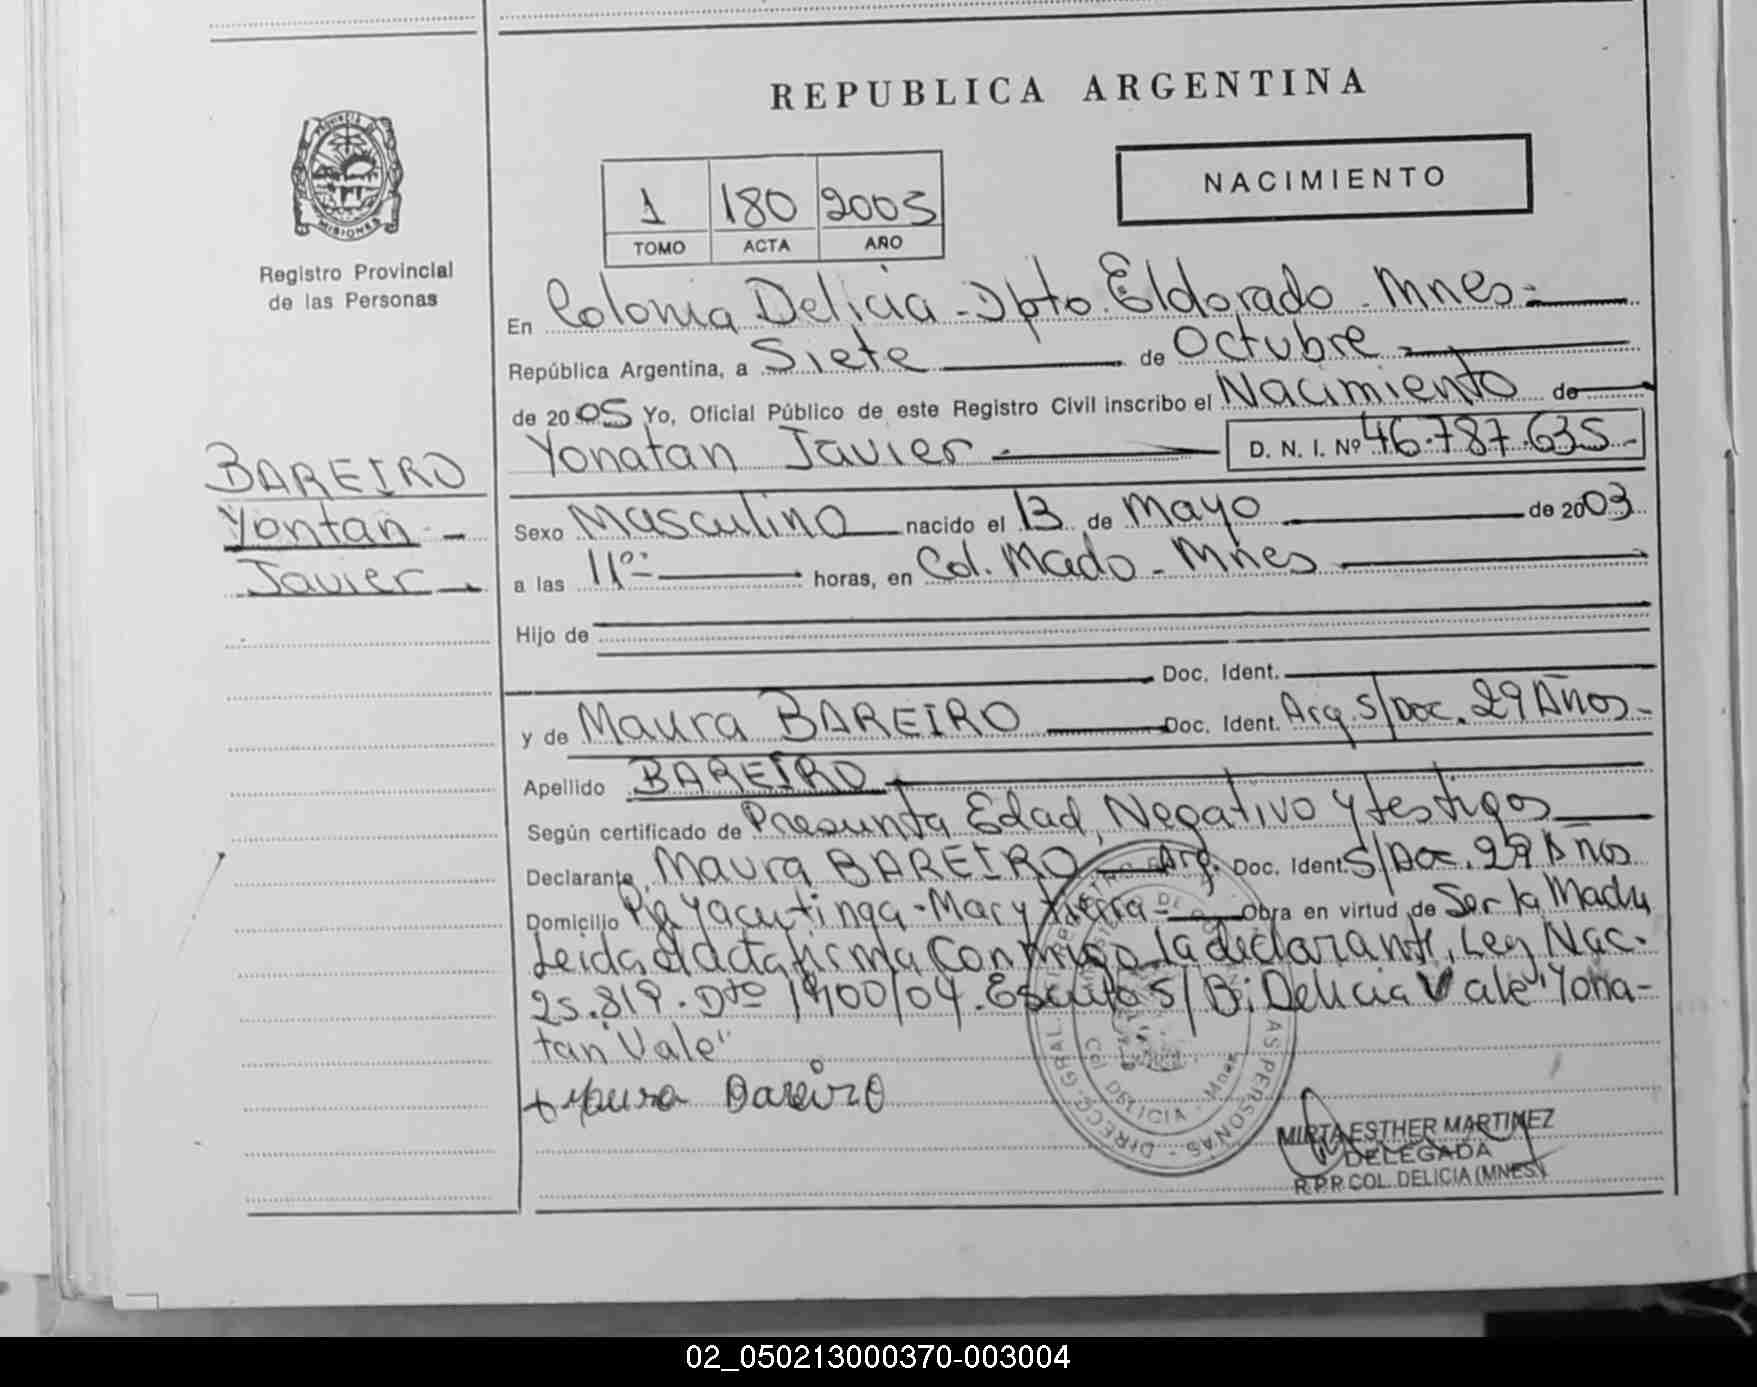 REPUBLICA ARGENTINA
PROVINCIA DE
MISIONES
Registro Provincial
de las Personas
1 180 2005
TOMO ACTA AÑO
NACIMIENTO
En Colonia Delicia - Dpto. Eldorado - Mnes -
República Argentina, a Siete de Octubre
de 2005 Yo, Oficial Público de este Registro Civil inscribo el Nacimiento de
Yonatan Javier D. N. I. Nº 46.787.635 -
BAREIRO
Yontan -
Javier
Sexo Masculino nacido el 13 de Mayo de 2003
a las 11º horas, en Col. Mado - Mnes
Hijo de
Doc. Ident.
y de Maura BAREIRO Doc. Ident. Arg. S/Doc. 29 Años -
Apellido BAREIRO
Según certificado de Presunta Edad, Negativo y testigos
Declarante Maura BAREIRO Arg. Doc. Ident. S/Doc. 29 Años
Domicilio Yacutinga - Obra en virtud de Ser la Madre
Leida el acta firma Conmigo la declarante, Ley Nac.
25.819 - Dto 1900/04. Escrito S/B: Delicia Vale "Yona-
tan Vale"
Bareiro
COL. DELICIA - Mnes
MIRTA ESTHER MARTINEZ
DELEGADA
R.P.P. COL. DELICIA (MNES)
02_050213000370-003004